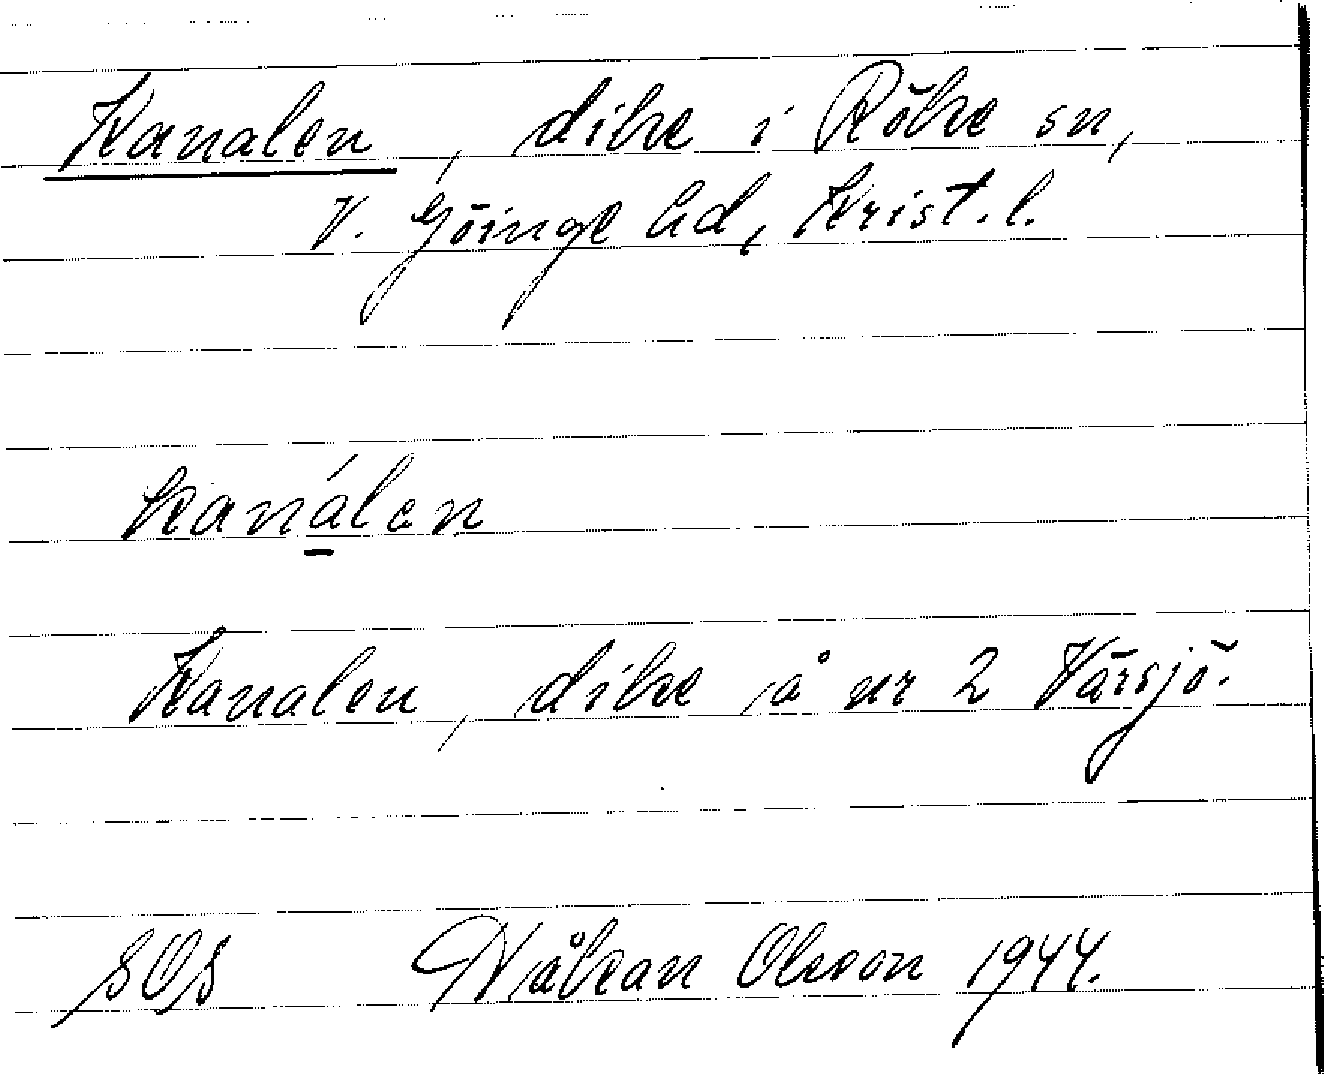 Kanalen, dike i Röke sn,
V. Göinge hd, Krist. l.
kanálen
Kanalen, dike å nr 2 Värsjö.
SOS Håkan Olsson 1944.